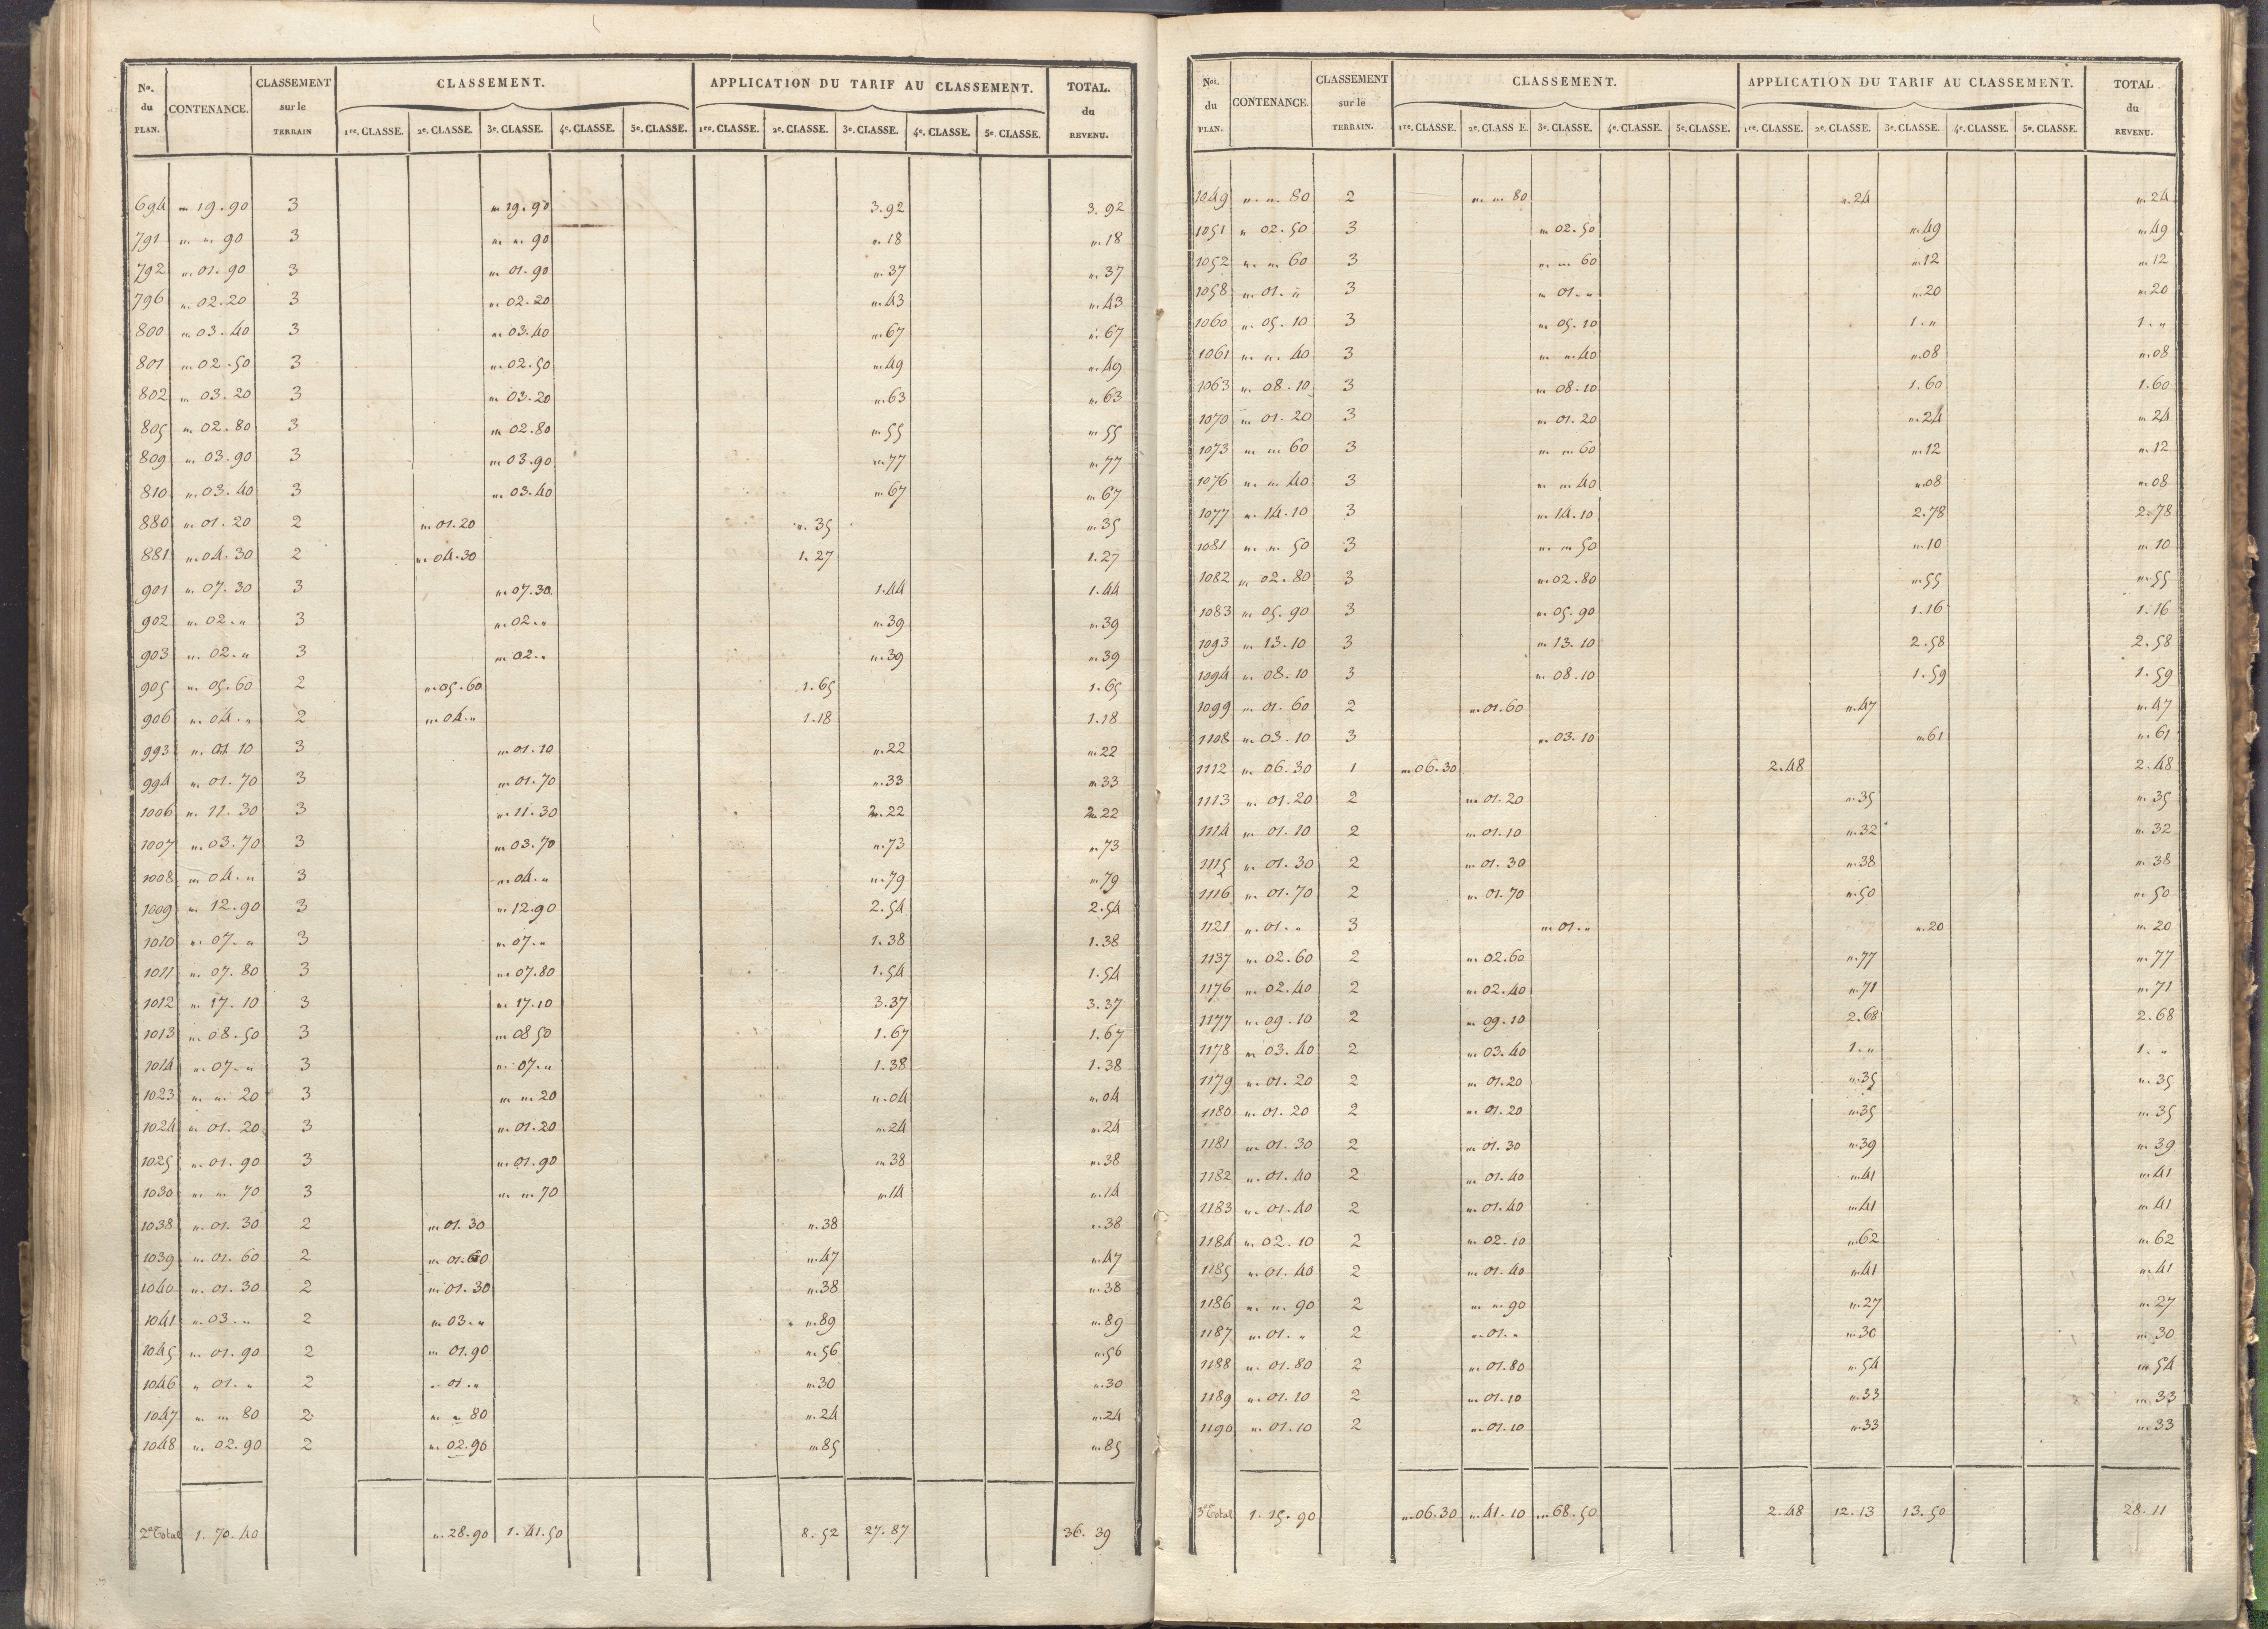 No. du PLAN. CONTENANCE. CLASSEMENT sur le TERRAIN CLASSEMENT. APPLICATION DU TARIF AU CLASSEMENT. TOTAL. du REVENU.
1re. CLASSE. 2e. CLASSE. 3e. CLASSE. 4e. CLASSE. 5e. CLASSE. 1re. CLASSE. 2e. CLASSE. 3e. CLASSE. 4e. CLASSE. 5e. CLASSE.
694 " 19.90 3 " 19.90 3.92 3.92
791 " " 90 3 " " 90 ".18 ".18
792 " 01.90 3 " 01.90 ".37 ".37
796 " 02.20 3 " 02.20 ".43 ".43
800 " 03.40 3 " 03.40 ".67 ".67
801 " 02.50 3 " 02.50 ".49 ".49
802 " 03.20 3 " 03.20 ".63 ".63
805 " 02.80 3 " 02.80 ".55 ".55
809 " 03.90 3 " 03.90 ".77 ".77
810 " 03.40 3 " 03.40 ".67 ".67
880 " 01.20 2 " 01.20 ".35 ".35
881 " 04.30 2 " 04.30 1.27 1.27
901 " 07.30 3 " 07.30 1.44 1.44
902 " 02." 3 " 02." ".39 ".39
903 " 02." 3 " 02." ".39 ".39
905 " 05.60 2 " 05.60 1.65 1.65
906 " 04." 2 " 04." 1.18 1.18
993 " 01.10 3 " 01.10 ".22 ".22
994 " 01.70 3 " 01.70 ".33 ".33
1006 " 11.30 3 " 11.30 2.22 2.22
1007 " 03.70 3 " 03.70 ".73 ".73
1008 " 04." 3 " 04." ".79 ".79
1009 " 12.90 3 " 12.90 2.54 2.54
1010 " 07." 3 " 07." 1.38 1.38
1011 " 07.80 3 " 07.80 1.54 1.54
1012 " 17.10 3 " 17.10 3.37 3.37
1013 " 08.50 3 " 08 50 1.67 1.67
1014 " 07." 3 " 07." 1.38 1.38
1023 " " 20 3 " " 20 ".04 ".04
1024 " 01.20 3 " 01.20 ".24 ".24
1025 " 01.90 3 " 01.90 ".38 ".38
1030 " " 70 3 " " 70 ".14 ".14
1038 " 01.30 2 " 01.30 ".38 ".38
1039 " 01.60 2 " 01.60 ".47 ".47
1040 " 01.30 2 " 01.30 ".38 ".38
1041 " 03." 2 " 03." ".89 ".89
1045 " 01.90 2 " 01.90 ".56 ".56
1046 " 01." 2 " 01." ".30 ".30
1047 " " 80 2 " " 80 ".24 ".24
1048 " 02.90 2 " 02.90 ".85 ".85
2e Total 1.70.40 ".28.90 1.41.50 8.52 27.87 36.39
Nos. du PLAN. CONTENANCE. CLASSEMENT sur le TERRAIN. CLASSEMENT. APPLICATION DU TARIF AU CLASSEMENT. TOTAL du REVENU.
1re. CLASSE. 2e. CLASS E. 3e. CLASSE. 4e. CLASSE. 5e. CLASSE. 1re. CLASSE. 2e. CLASSE. 3e. CLASSE. 4e. CLASSE. 5e. CLASSE.
1049 " " 80 2 " " 80 ".24 ".24
1051 " 02.50 3 " 02.50 ".49 ".49
1052 " " 60 3 " " 60 ".12 ".12
1058 " 01." 3 " 01." ".20 ".20
1060 " 05.10 3 " 05.10 1." 1."
1061 " " 40 3 " " 40 ".08 ".08
1063 " 08.10 3 " 08.10 1.60 1.60
1070 " 01.20 3 " 01.20 ".24 ".24
1073 " " 60 3 " " 60 ".12 ".12
1076 " " 40 3 " " 40 ".08 ".08
1077 " 14.10 3 " 14.10 2.78 2.78
1081 " " 50 3 " " 50 ".10 ".10
1082 " 02.80 3 " 02.80 ".55 ".55
1083 " 05.90 3 " 05.90 1.16 1.16
1093 " 13.10 3 " 13.10 2.58 2.58
1094 " 08.10 3 " 08.10 1.59 1.59
1099 " 01.60 2 " 01.60 ".47 ".47
1108 " 03.10 3 " 03.10 ".61 ".61
1112 " 06.30 1 " 06.30 2.48 2.48
1113 " 01.20 2 " 01.20 ".35 ".35
1114 " 01.10 2 " 01.10 ".32 ".32
1115 " 01.30 2 " 01.30 ".38 ".38
1116 " 01.70 2 " 01.70 ".50 ".50
1121 " 01." 3 " 01." ".20 ".20
1137 " 02.60 2 " 02.60 ".77 ".77
1176 " 02.40 2 " 02.40 ".71 ".71
1177 " 09.10 2 " 09.10 2.68 2.68
1178 " 03.40 2 " 03.40 1." 1."
1179 " 01.20 2 " 01.20 ".35 ".35
1180 " 01.20 2 " 01.20 ".35 ".35
1181 " 01.30 2 " 01.30 ".39 ".39
1182 " 01.40 2 " 01.40 ".41 ".41
1183 " 01.40 2 " 01.40 ".41 ".41
1184 " 02.10 2 " 02.10 ".62 ".62
1185 " 01.40 2 " 01.40 ".41 ".41
1186 " " 90 2 " " 90 ".27 ".27
1187 " 01." 2 " 01." ".30 ".30
1188 " 01.80 2 " 01.80 ".54 ".54
1189 " 01.10 2 " 01.10 ".33 ".33
1190 " 01.10 2 " 01.10 ".33 ".33
3e Total 1.15.90 ".06.30 ".41.10 ".68.50 2.48 12.13 13.50 28.11